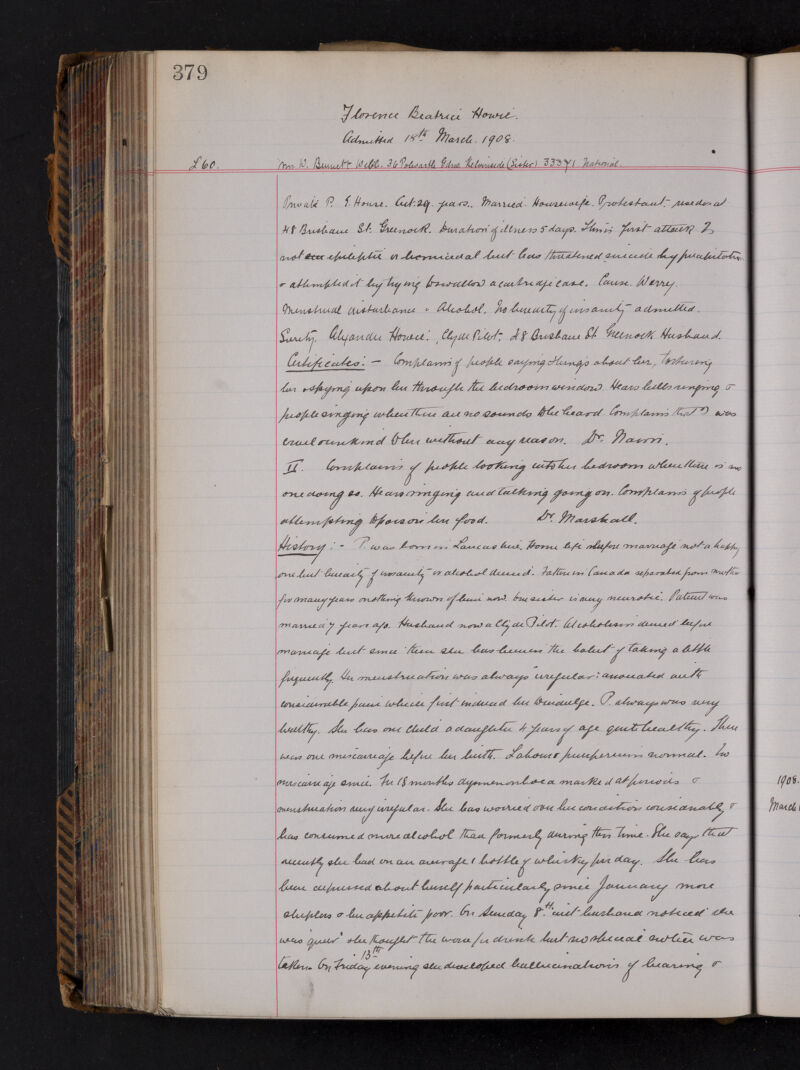 379
Florence Beatrice Howie.
Admitted 18th March. 1908.
£60. Mrs W. Bennett Webb. 36 Polwarth Gdns Kelvinside (Sister) 33341 National.
Private P. E. House. Aet: 29. years. Married. Housewife. Protestant. resides at
48 Brisbane St. Greenock. Duration of illness 5 days. This is first attack. Is
not epileptic or homicidal but has threatened suicide by precipitation
& attempted it by trying to swallow a cartridge case. Cause. Worry.
Menstrual disturbance & Alcohol. No heredity of insanity admitted.
Surety. Alexander Howie. Clyde Pilot. 48 Brisbane St Greenock Husband.
Certificates: - Complains of people saying things about her, torturing
her & spying upon her through the bedroom window. Hears bells ringing &
people singing when there are no sounds to be heard. Complains that I was
cruel & unkind to her without any reason. Dr. Nairn.
II. Complains of people looking into her bedroom when there is no
one doing so. Hears singing and talking going on. Complains of people
attempting to poison her food. Dr. Marshall.
History: - P. was born in Lancashire. Home life before marriage not a happy
one but heredity of insanity or alcohol denied. Father in Canada separated from mother
for many years & nothing known of him now. One sister is very neurotic. Patient was
married 7 years ago. Husband now a Clyde Pilot. Alcoholism denied before
marriage but since then she has been in the habit of taking a little
frequently. Her menstruation was always irregular: associated with
considerable pain which first induced her to indulge. P. always was very
healthy. She has one child a daughter 4 years of age quite healthy. There
was one miscarriage before her birth. Labour & puerperium normal. No
miscarriage since. For 18 months dysmenorrhoea marked at periods &
menstruation very irregular. She has worried over her condition considerably &
has consumed more alcohol than formerly during this time. She says that
recently she had on an average 1 bottle of whisky per day. She has
been depressed about herself particularly since January more
sleepless & her appetite poor. On Sunday 8th inst husband noticed she
was "queer" & he thought the worse for drink but no special notice was
taken. On Friday 13th evening she developed hallucinations of hearing &
1908.
March